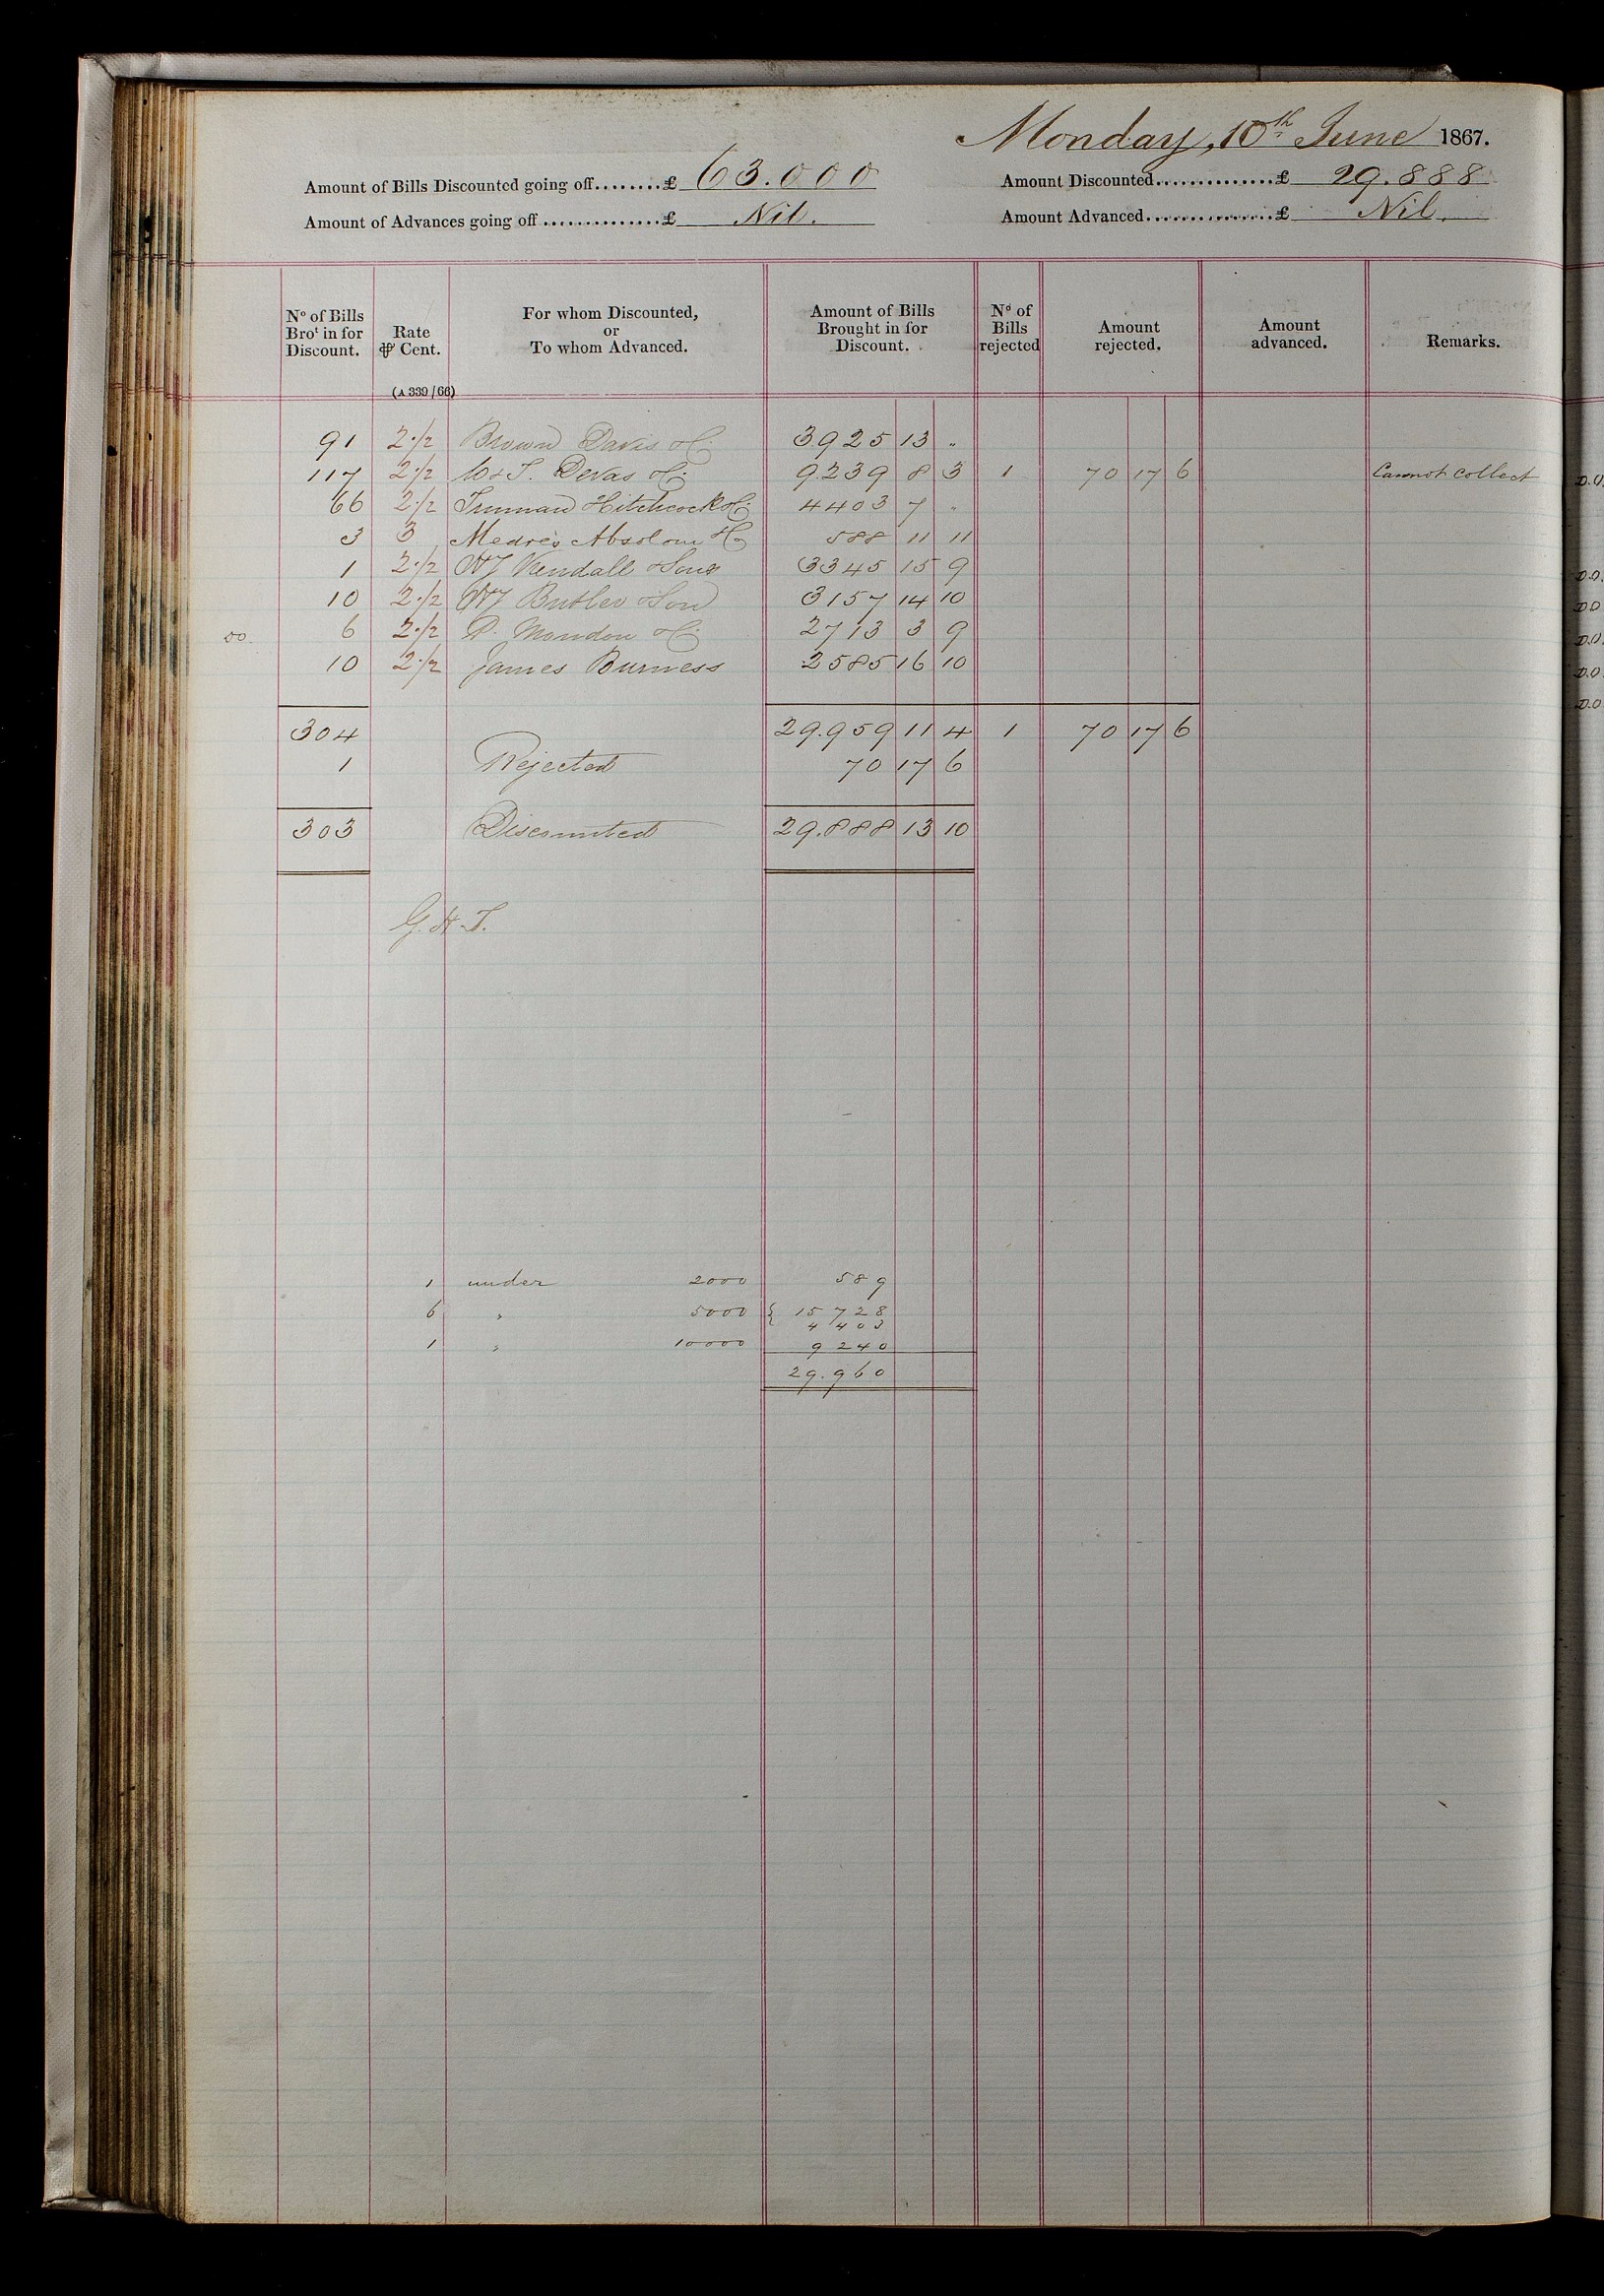 Monday, 10th June 1867.
Amount of Bills Discounted going off........£ 63.000 Amount Discounted...............£ 29.888
Amount of Advances going off ..............£ Nil. Amount Advanced................£ Nil.
No of Bills Brot in for Discount. Rate ⅌ Cent. For whom Discounted, or To whom Advanced. Amount of Bills Brought in for Discount. No of Bills rejected Amount rejected. Amount advanced. Remarks.
(A 339/66)
91 2 1/2 Brown Davis & Co 3925 13 "
117 2 1/2 W & T. Devas & Co 9239 8 3 1 70 17 6 Cannot collect
66 2 1/2 Hitchcock & Co 4403 7 "
3 3 Absolom & Co 588 11 11
1 2 1/2 Kendall & Sons 3345 15 9
10 2 1/2 Butler & Son 3157 14 10
6 2 1/2 & Co 2713 3 9
10 2 1/2 James Burness 2585 16 10
304 29.959 11 4 1 70 17 6
1 Rejected 70 17 6
303 Discounted 29.888 13 10
G. H. T.
1 under 2000 589
6 " 5000 { 15728
4403
1 " 10000 9240
29.960